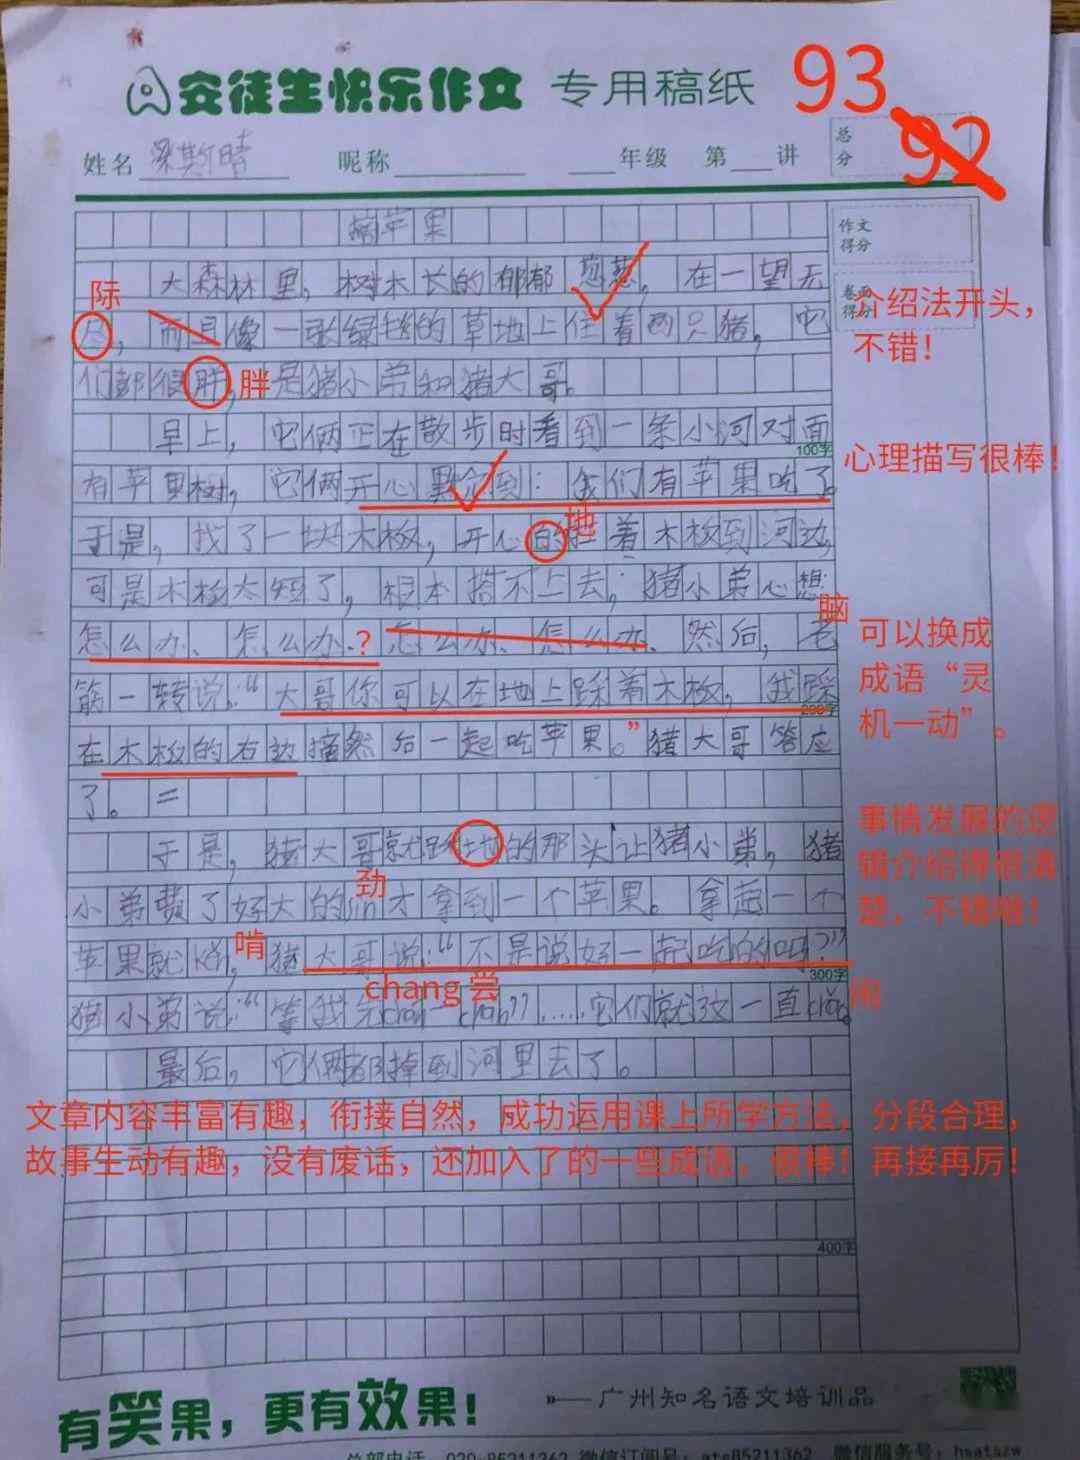 安徒生快乐作文 专用稿纸 93
92
姓名 昵称 年级 第 讲 总分
摘苹果
作文得分
大森林里，树木长的郁郁葱葱，在一望无
卷面得分
际
尽，而且像一张绿毯的草地上住着两只猪，它
介绍法开头，不错！
们都很胖，胖是猪小弟和猪大哥。
早上，它俩正在散步时看到一条小河对面
100字
心理描写很棒！
有苹果树，它俩开心默念到：我们有苹果吃了。
地
于是，找了一块木板，开心的 着木板到河边，
可是木板太短了，根本搭不上去，猪小弟心想：
脑
怎么办、怎么办、？怎么办、怎么办、然后，老
可以换成成语“灵机一动”。
筋一转说：“大哥你可以在地上踩着木板，我踩
200字
在木板的右边摘然后一起吃苹果。”猪大哥答应
了。=
事情发展的逻辑介绍得很清楚，不错哦！
于是，猪大哥就 的那头让猪小弟，猪
劲
小弟费了好大的jin才拿到一个苹果。拿起一个
啃
苹果就 ，猪大哥说：“不是说好一起吃的吗？”
300字
chang 尝
猪小弟说：“等我先 ”……它们就这一直
最后，它俩都掉到河里去了。
文章内容丰富有趣，衔接自然，成功运用课上所学方法，分段合理，
故事生动有趣，没有废话，还加入了的一些成语，很棒！再接再厉！
400字
有笑果，更有效果！ »—广州知名语文培训品
总部电话 020-85211362 微信订阅号：ats85211362 微信服务号：